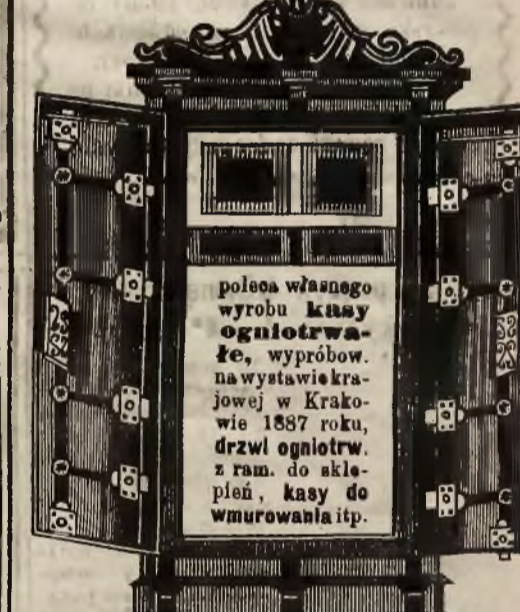 poleca własnego
wyrobu kasy
ogniotrwa-
łe, wypróbow.
na wystawie kra-
jowej w Krako-
wie 1887 roku,
drzwi ogniotrw.
z ram. do skle-
pień, kasy do
wmurowania itp.